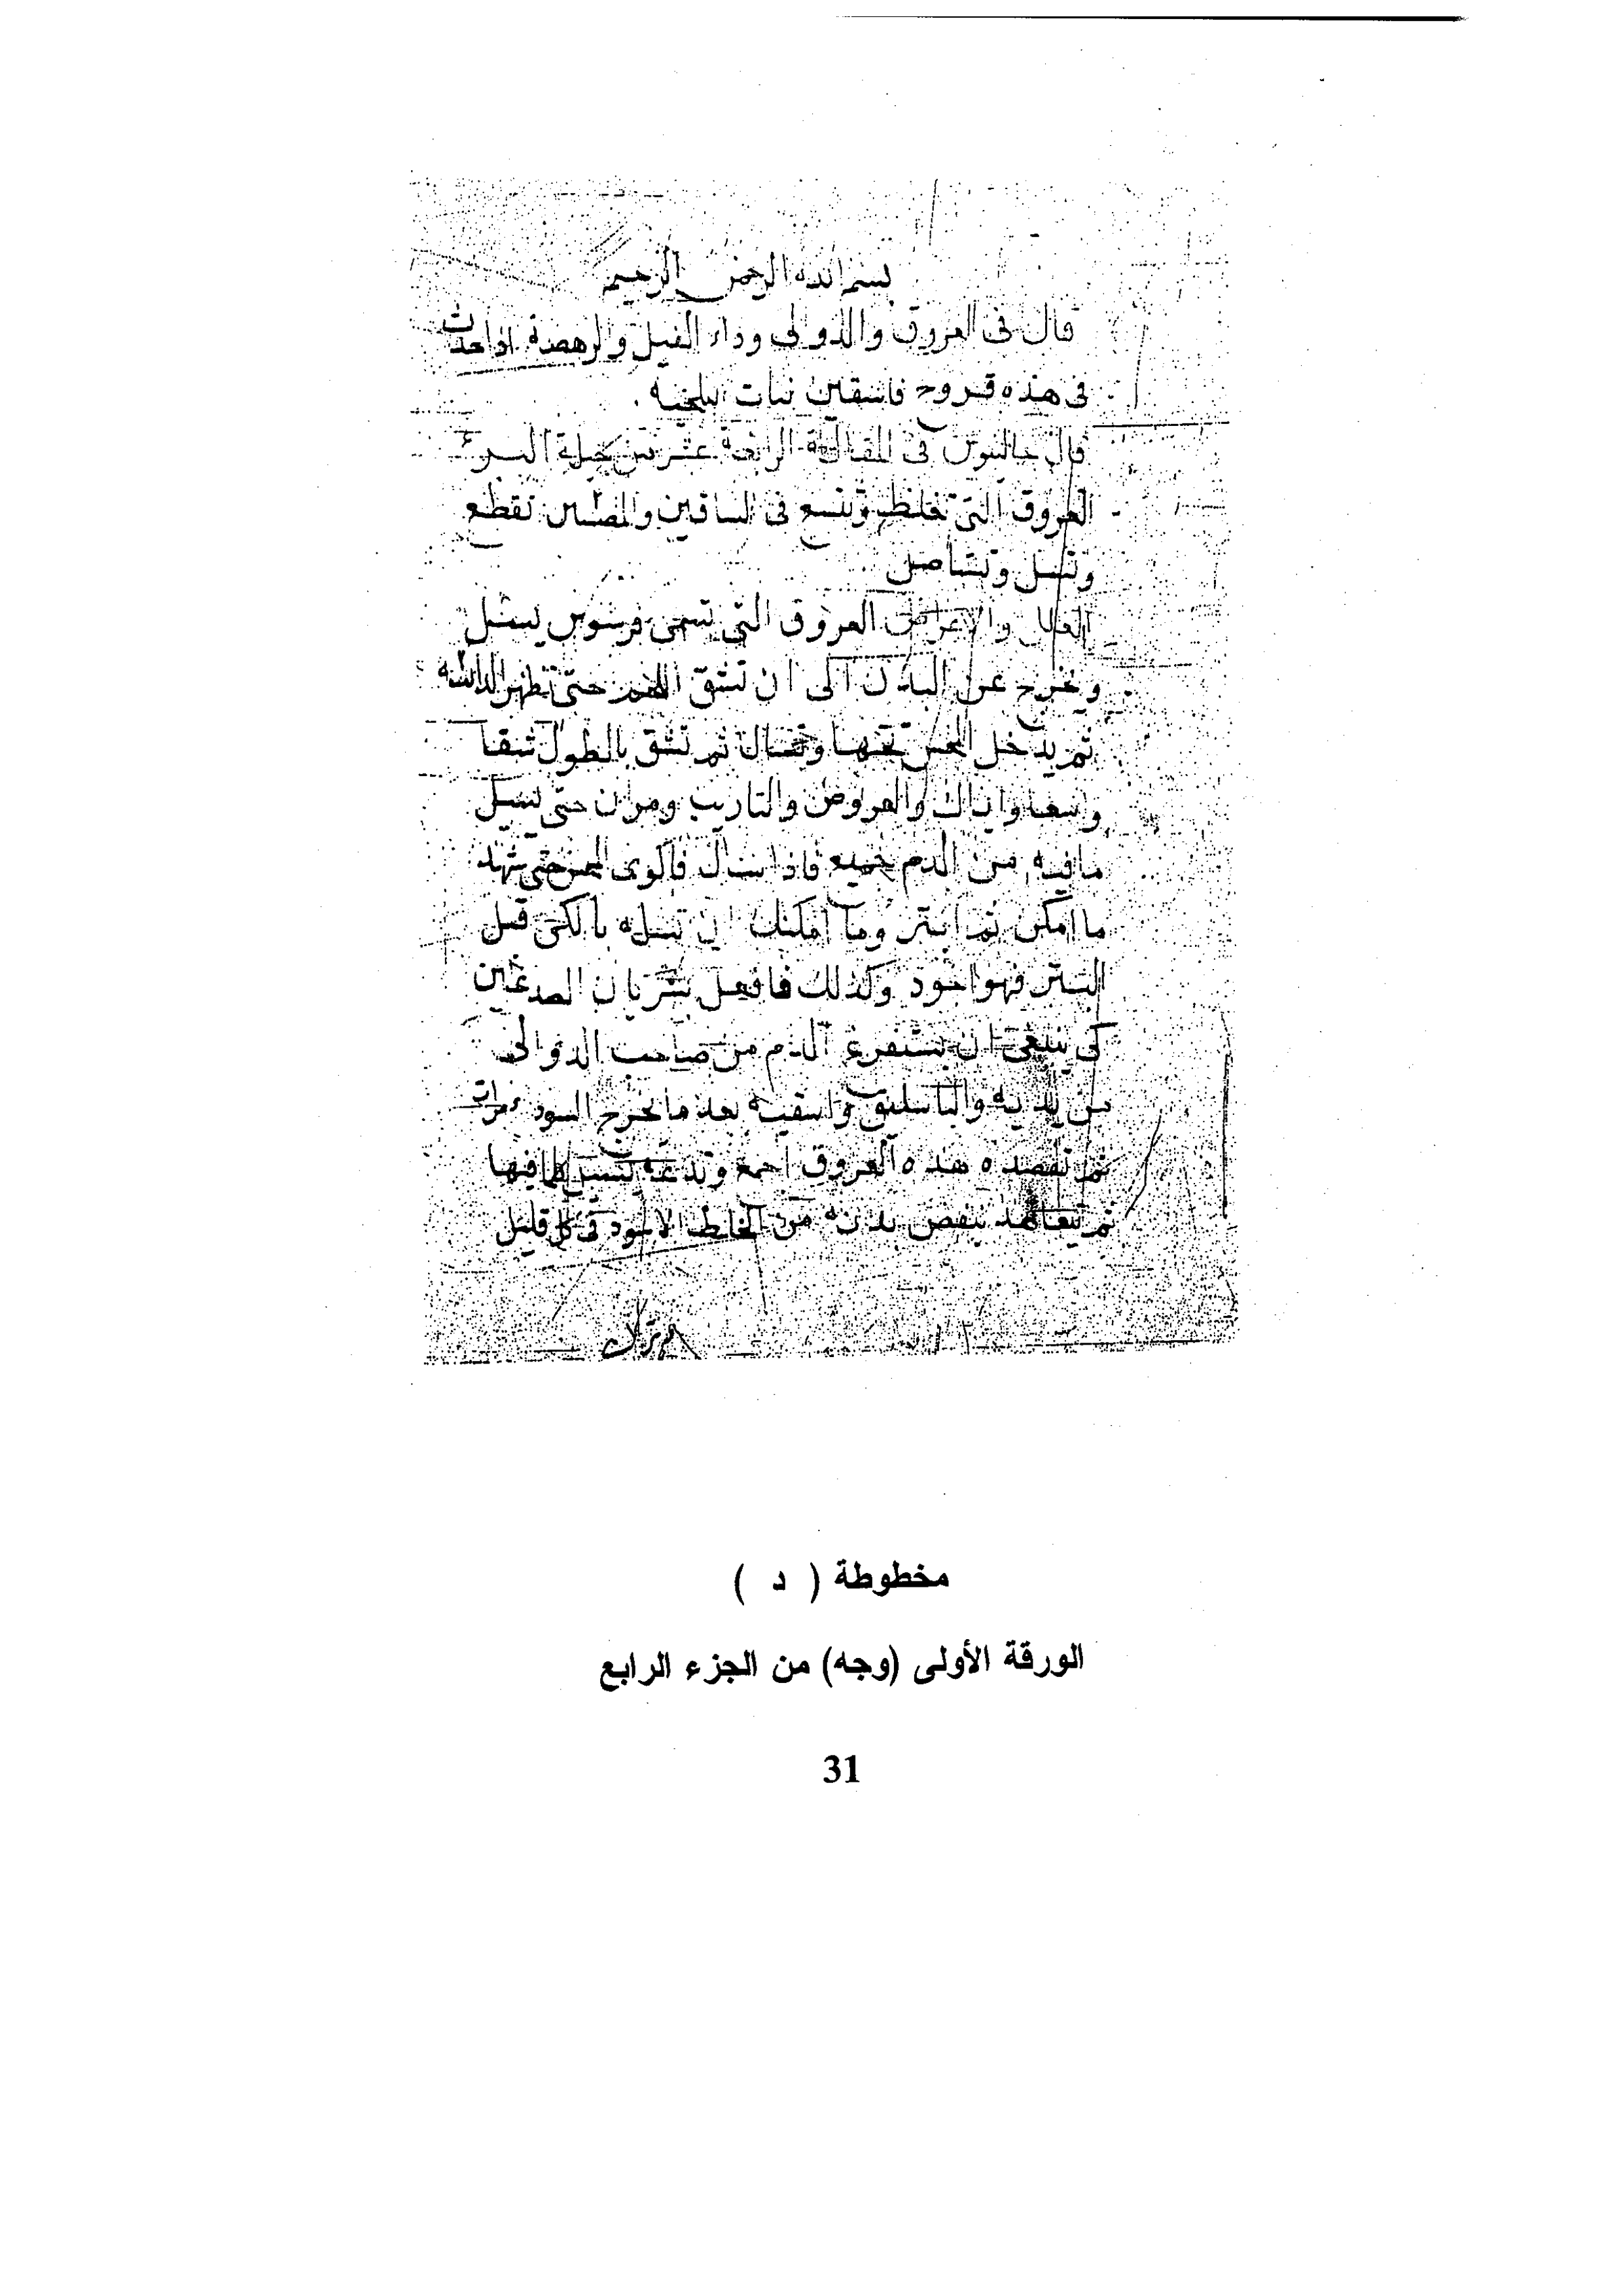 بسم الله الرحمن الرحيم
قال في العروق والدوالي وداء الفيل والرهصة اذا حدث
في هذه قروح فاسقين نبات
قال جالينوس في المقالة الرابعة عشر من حيلة البرء
العروق التي تغلظ وتتسع في الساقين تقطع
وتسل وتستاصل
العلل والاعراض العروق التي تسمى
ويخرج عن البدن الى ان تشق الجلد حتى تظهر
ثم يدخل تحتها وتشال ثم تشق بالطول شقا
واسعا واياك والعروض والتاريب حتى يسيل
ما فيه من الدم جميعه فاذا سال
ما امكن ثم ابتر وما امكنك ان تسله بالكي قبل
البتر فهو اجود وكذلك فافعل بشريان الصدغين
كي ينبغي ان يستفرغ الدم من صاحب الدوالي
من يديه والباسليق واسقيه بعد ما يخرج السوداء مرات
ثم تفصد هذه العروق اجمع وتدعه يسيل كلما فيها
ثم يتعاهد بنفض بدنه من الخلط الاسود في كل قليل
مخطوطة ( د )
الورقة الأولى (وجه) من الجزء الرابع
31